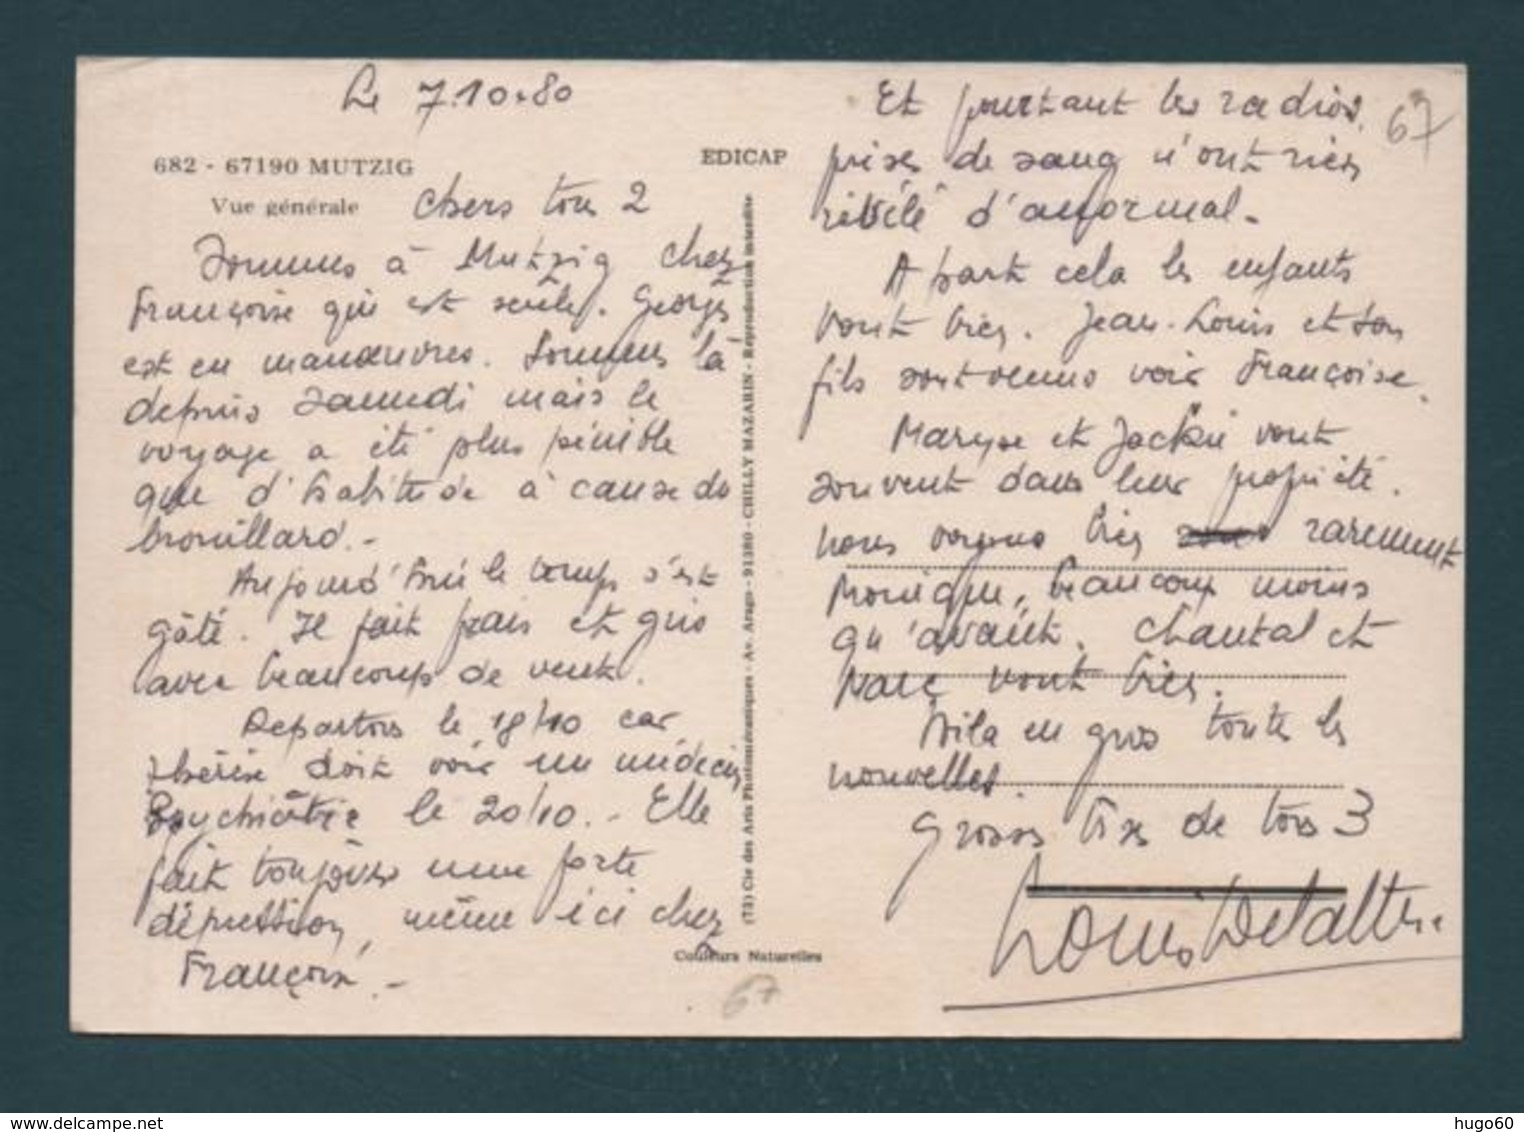 Le 7.10.80
682 - 67190 MUTZIG
Vue générale
EDICAP
Chers tous 2
Sommes à Mutzig chez
Françoise qui est seule. Georges
est en manœuvres. Sommes là
depuis samedi mais le
voyage a été plus pénible
que d'habitude à cause du
brouillard.-
Aujourd'hui le temps s'est
gâté. Il fait frais et gris
avec beaucoup de vent.
Repartons le 18/10 car
Thérèse doit voir un médecin
Psychiâtre le 20/10.- Elle
fait toujours une forte
dépression, même ici chez
Françoise.-
(73) Cie des Arts Photomécaniques - Av. Arago - 91380 - CHILLY MAZARIN - Reproduction interdite
Couleurs Naturelles
67
67
Et pourtant les radios,
prises de sang n'ont rien
révélé d'anormal-
A part cela les enfants
vont bien. Jean-Louis et son
fils sont venus voir Françoise.
Maryse et Jackie vont
souvent dans leur propriété.
nous voyons bien rarement
Monique, beaucoup moins
qu'avant. Chantal et
Marc vont bien.
Voila en gros toutes les
nouvelles.
Grosses bises de tous 3
Louis Delattre
hugo60